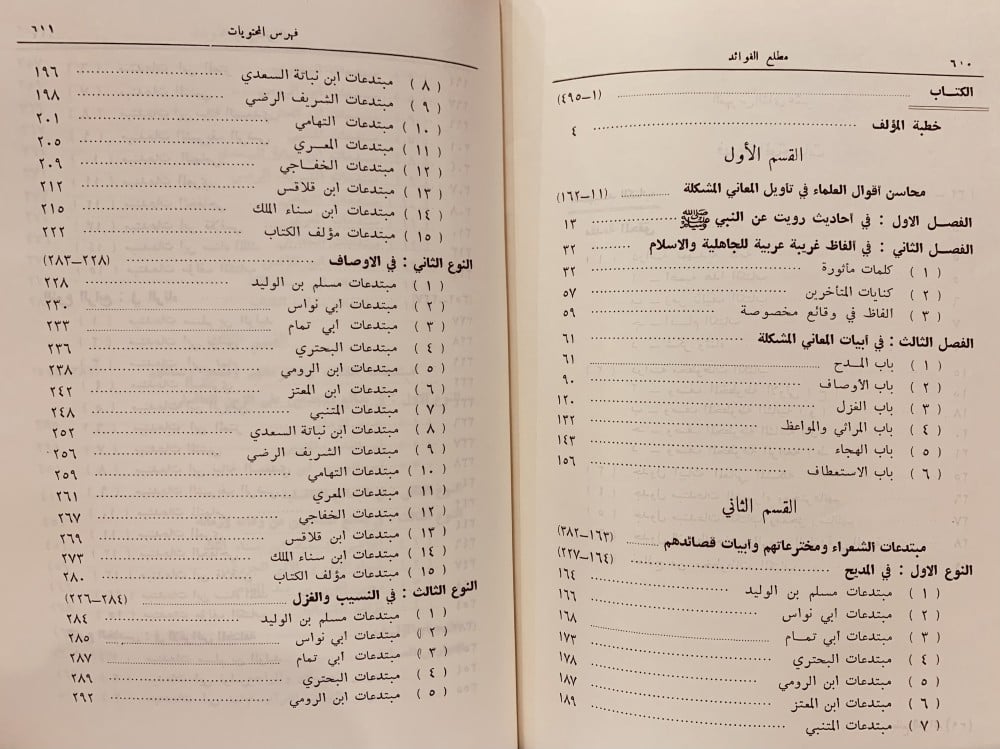 ٦١٠ مطلع الفوائد
الكتاب ........ (١–٤٩٥)
خطبة المؤلف ........ ٤
القسم الأول
محاسن أقوال العلماء في تأويل المعاني المشكلة ........ (١١–١٦٢)
الفصل الاول : في أحاديث رويت عن النبي ﷺ ........ ١٣
الفصل الثاني : في ألفاظ غريبة عربية للجاهلية والاسلام ........ ٣٢
( ١ ) كلمات مأثورة ........ ٣٢
( ٢ ) كنايات المتأخرين ........ ٥٧
( ٣ ) الفاظ في وقائع مخصوصة ........ ٥٩
الفصل الثالث : في أبيات المعاني المشكلة ........ ٦١
( ١ ) باب المدح ........ ٦١
( ٢ ) باب الأوصاف ........ ٩٠
( ٣ ) باب الغزل ........ ١٢٠
( ٤ ) باب المراثي والمواعظ ........ ١٣٢
( ٥ ) باب الهجاء ........ ١٤٣
( ٦ ) باب الاستعطاف ........ ١٥٦
القسم الثاني
مبتدعات الشعراء ومخترعاتهم وأبيات قصائدهم ........ (١٦٣–٣٨٢)
النوع الاول : في المديح ........ (١٦٤–٢٢٧)
( ١ ) مبتدعات مسلم بن الوليد ........ ١٦٤
( ٢ ) مبتدعات أبي نواس ........ ١٦٦
( ٣ ) مبتدعات أبي تمام ........ ١٦٨
( ٤ ) مبتدعات البحتري ........ ١٧٣
( ٥ ) مبتدعات ابن الرومي ........ ١٧٨
( ٦ ) مبتدعات ابن المعتز ........ ١٨٧
( ٧ ) مبتدعات المتنبي ........ ١٨٩
فهرس المحتويات ٦١١
( ٨ ) مبتدعات ابن نباتة السعدي ........ ١٩٦
( ٩ ) مبتدعات الشريف الرضي ........ ١٩٨
( ١٠ ) مبتدعات التهامي ........ ٢٠١
( ١١ ) مبتدعات المعري ........ ٢٠٥
( ١٢ ) مبتدعات الخفاجي ........ ٢٠٩
( ١٣ ) مبتدعات ابن قلاقس ........ ٢١٢
( ١٤ ) مبتدعات ابن سناء الملك ........ ٢١٥
( ١٥ ) مبتدعات مؤلف الكتاب ........ ٢٢٢
النوع الثاني : في الأوصاف ........ (٢٢٨–٢٨٣)
( ١ ) مبتدعات مسلم بن الوليد ........ ٢٢٨
( ٢ ) مبتدعات أبي نواس ........ ٢٣٠
( ٣ ) مبتدعات أبي تمام ........ ٢٣٣
( ٤ ) مبتدعات البحتري ........ ٢٣٦
( ٥ ) مبتدعات ابن الرومي ........ ٢٣٨
( ٦ ) مبتدعات ابن المعتز ........ ٢٤٢
( ٧ ) مبتدعات المتنبي ........ ٢٤٨
( ٨ ) مبتدعات ابن نباتة السعدي ........ ٢٥٢
( ٩ ) مبتدعات الشريف الرضي ........ ٢٥٦
( ١٠ ) مبتدعات التهامي ........ ٢٥٩
( ١١ ) مبتدعات المعري ........ ٢٦١
( ١٢ ) مبتدعات الخفاجي ........ ٢٦٧
( ١٣ ) مبتدعات ابن قلاقس ........ ٢٦٩
( ١٤ ) مبتدعات ابن سناء الملك ........ ٢٧٣
( ١٥ ) مبتدعات مؤلف الكتاب ........ ٢٨٠
النوع الثالث : في النسيب والغزل ........ (٢٨٤–٢٢٦)
( ١ ) مبتدعات مسلم بن الوليد ........ ٢٨٤
( ٢ ) مبتدعات أبي نواس ........ ٢٨٥
( ٣ ) مبتدعات أبي تمام ........ ٢٨٧
( ٤ ) مبتدعات البحتري ........ ٢٨٩
( ٥ ) مبتدعات ابن الرومي ........ ٢٩٢